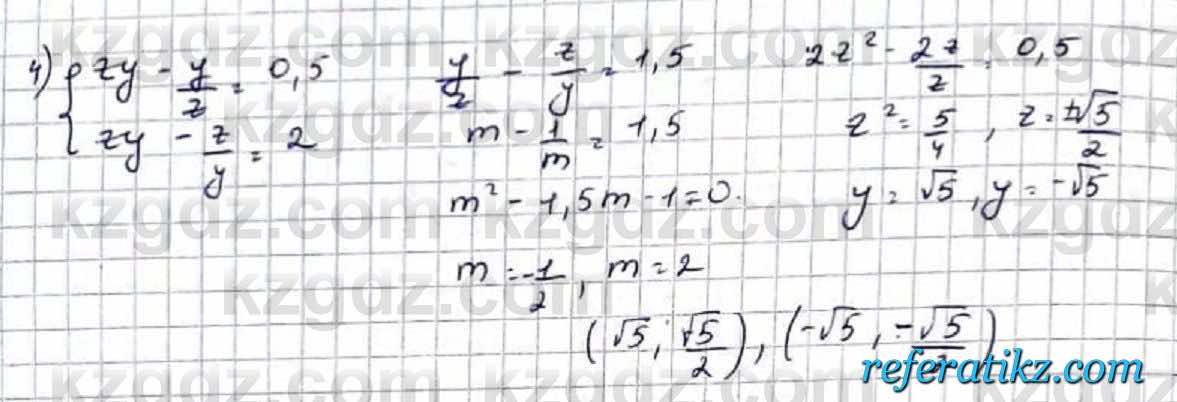 4) { zy - y/z = 0,5
zy - z/y = 2
y/z - z/y = 1,5
m - 1/m = 1,5
m² - 1,5m - 1 = 0.
m = -1/2, m = 2
2z² - 2z/z = 0,5
z² = 5/4, z = ±√5/2
y = √5, y = -√5
(√5; √5/2), (-√5, -√5/2)
kzgdz.com
referatikz.com